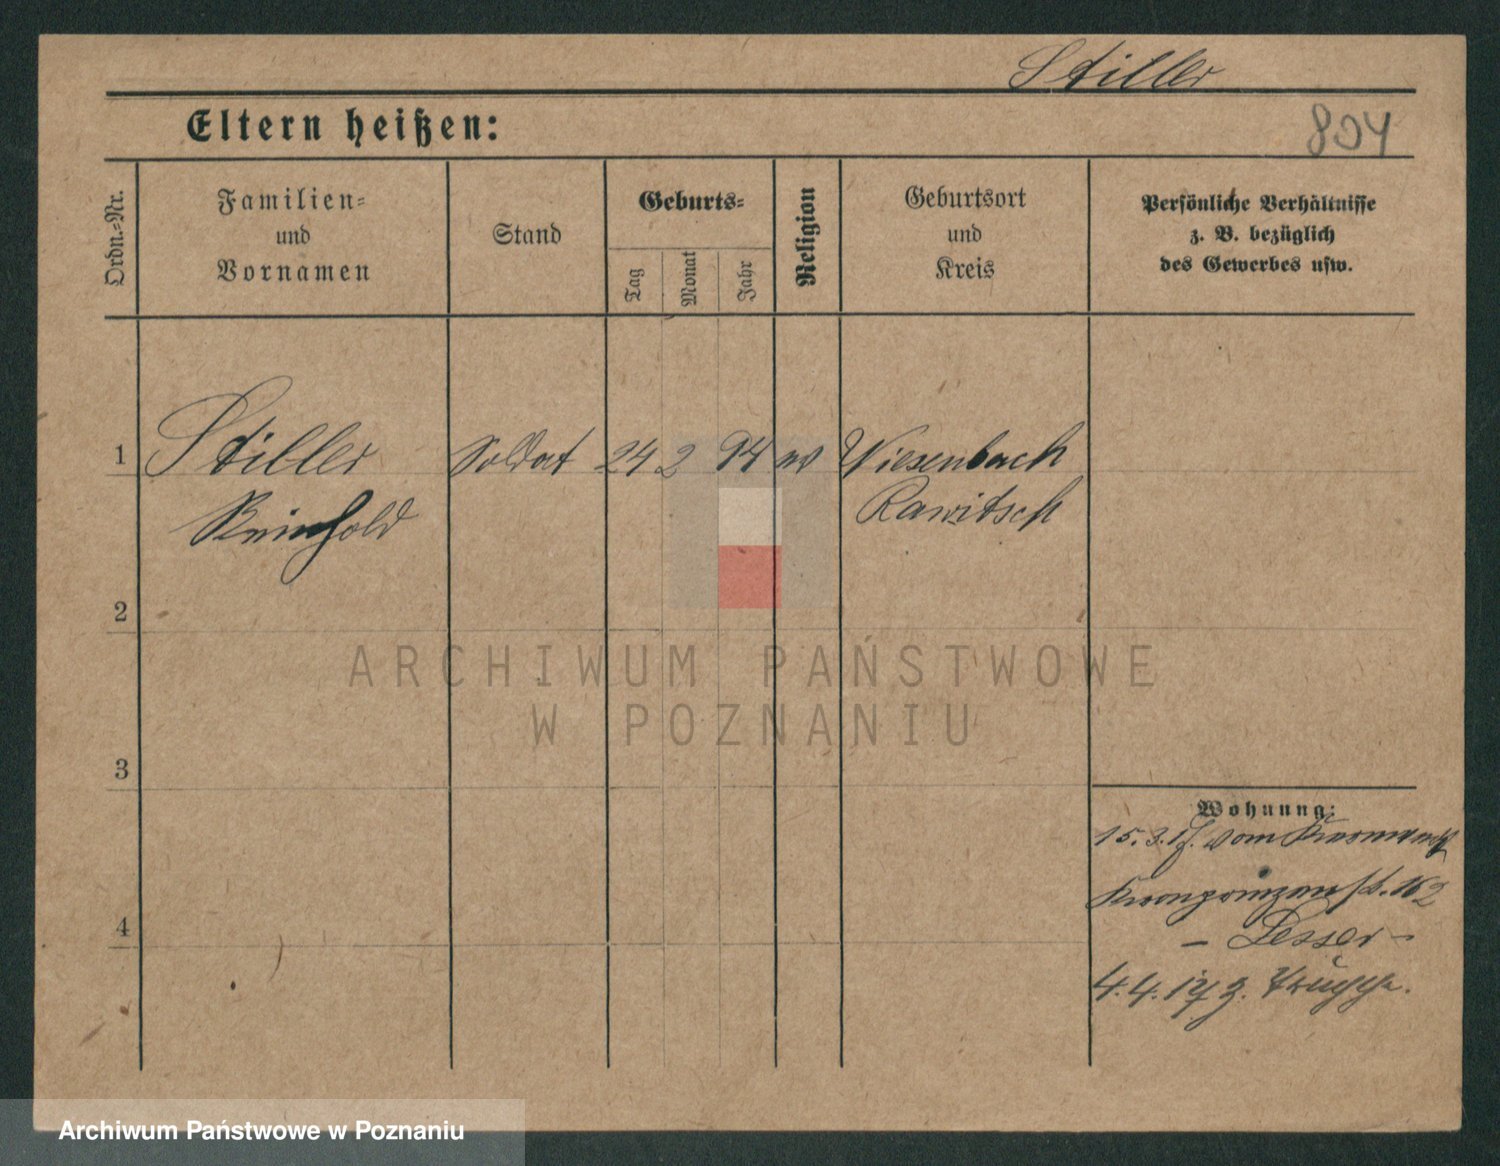 Stiller
Eltern heißen:
804
Ordn.-Nr.
Familien-
und
Vornamen
Stand
Geburts-
Tag
Monat
Jahr
Religion
Geburtsort
und
Kreis
Persönliche Verhältnisse
z. B. bezüglich
des Gewerbes usw.
1 Stiller Soldat 24 2 94 ev Wiesenbach
Reinhold Rawitsch
2
ARCHIWUM PAŃSTWOWE
W POZNANIU
3
Wohnung:
15.3.17. vom
Kronprinzenst. 162
- Lesser -
4
4.4.17 z. Truppe.
Archiwum Państwowe w Poznaniu